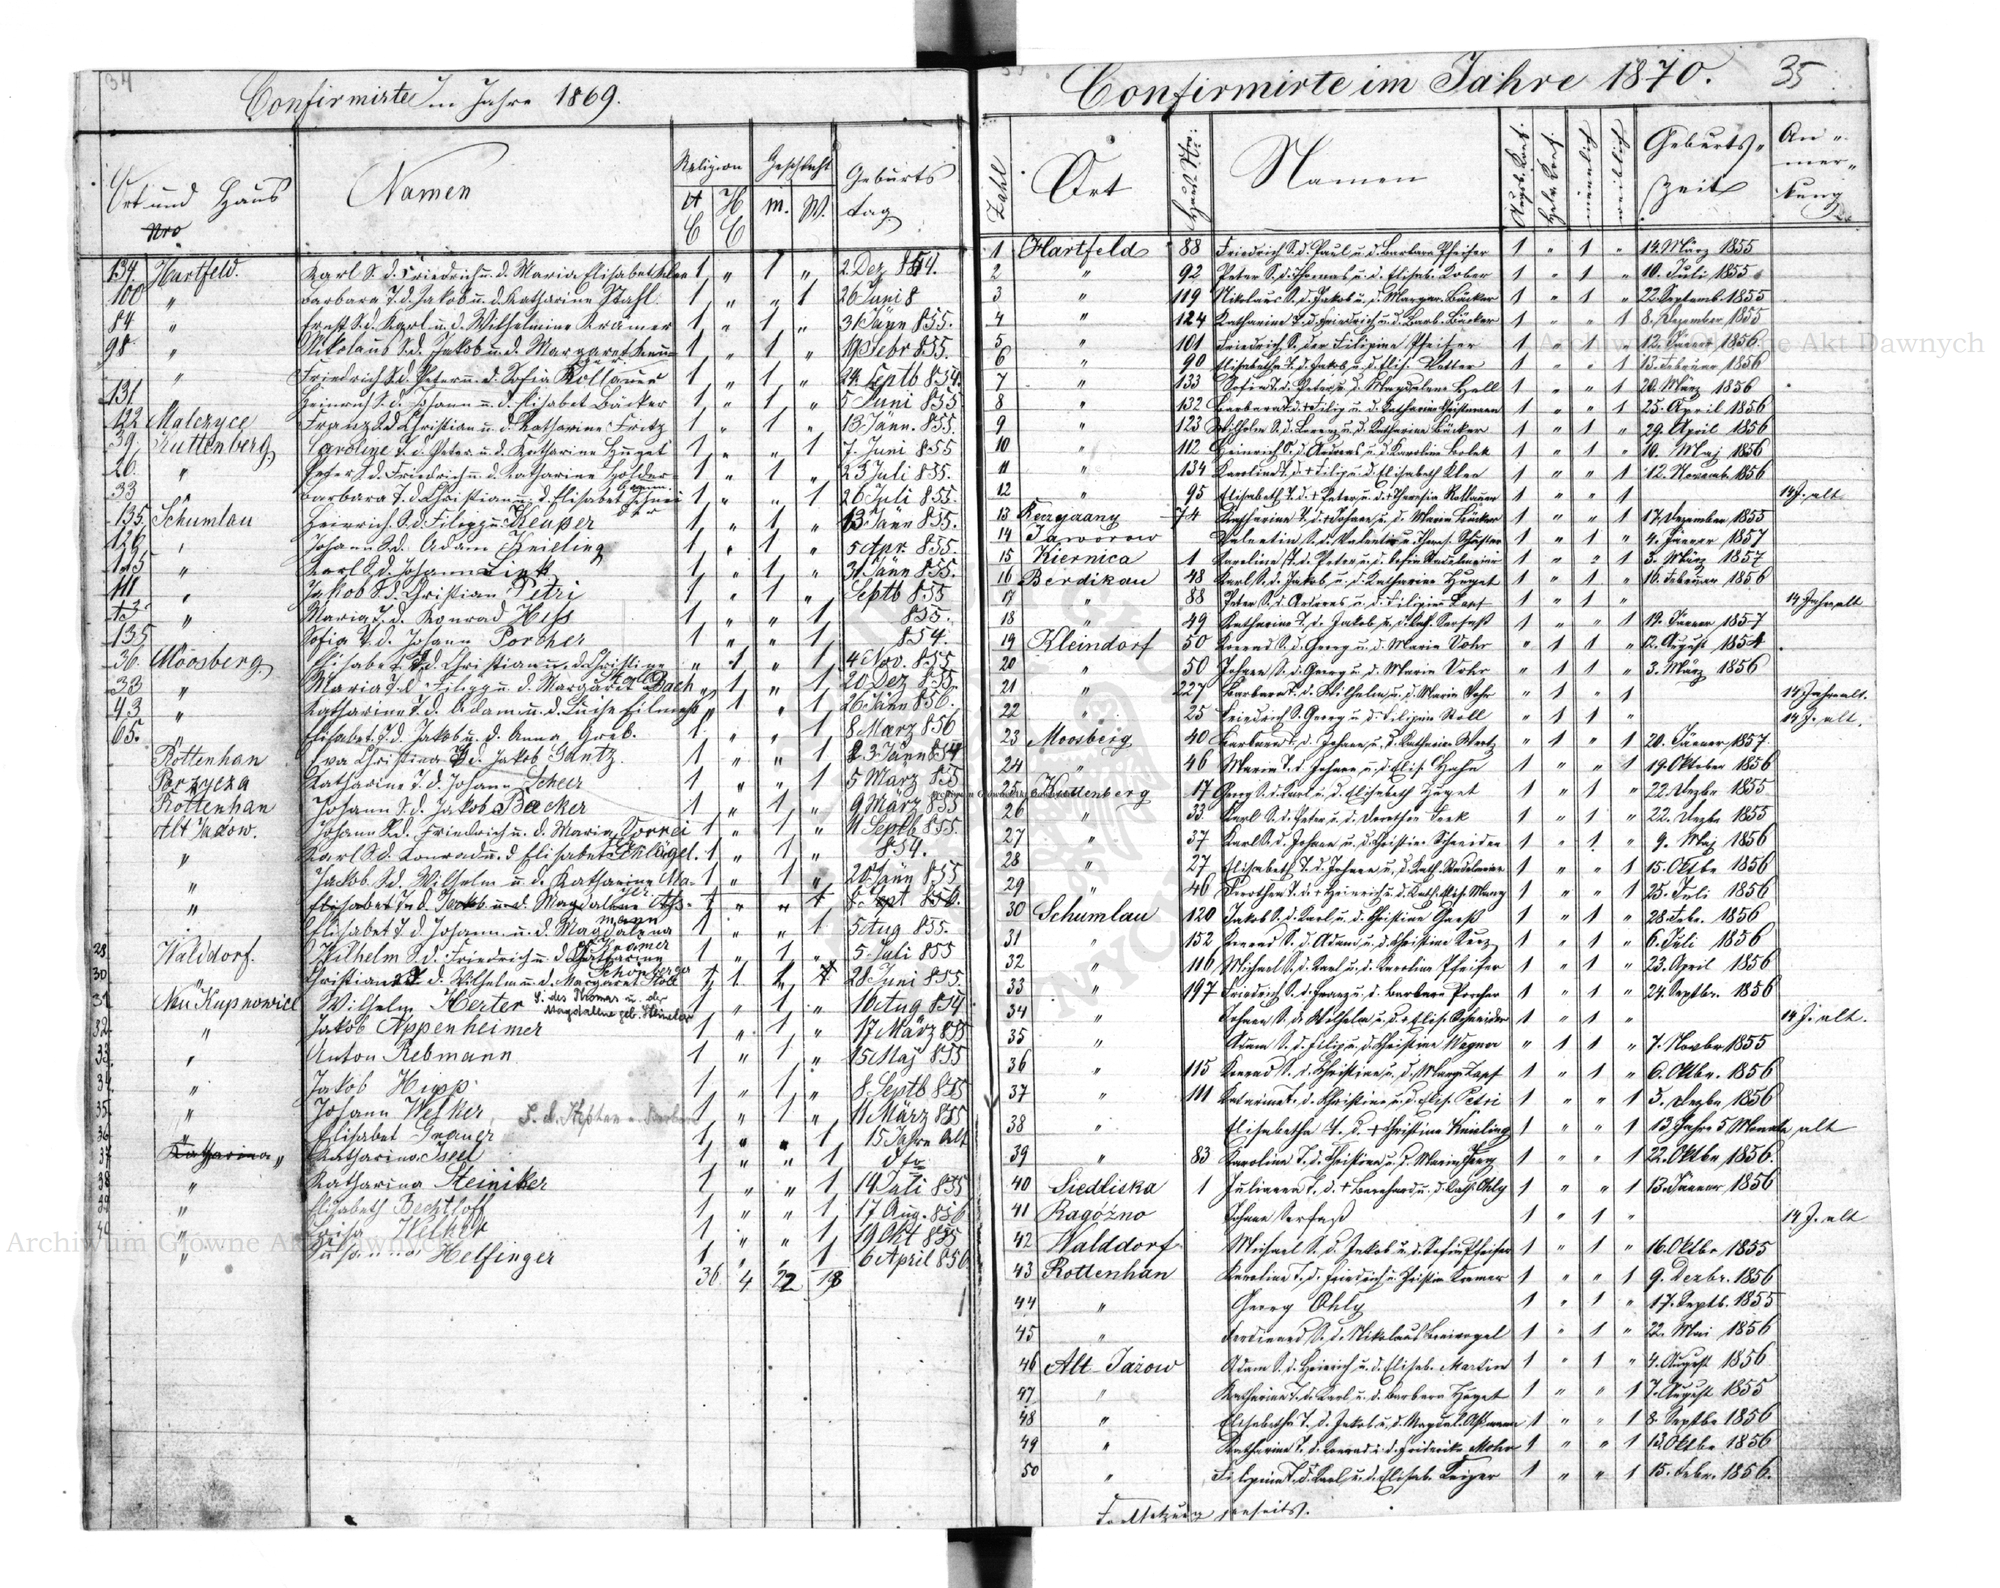 34
Confirmirte im Jahre 1869.
Ort und Haus Nro
Namen
Religion
Geschlecht
Geburts tag
A C
H C
m.
W.
134. Hartfeld. Karl S. d. Friedrich u. d. Maria Elisabet Klee 1 " 1 " 2 Dez 854.
100 " Barbara T. d. Jakob u. d. Katharine Stahl 1 " " 1 26 Juni 8
84 " Ernst S. d. Karl u. d. Wilhelmine Kramer 1 " 1 " 31 Jänn 855.
98 " Nikolaus S. d. Jakob u. d. Margaret 1 " 1 " 19 Febr 855.
" Friedrich S. d. Peter u. d. Sofia Kollauer 1 " 1 " 24. Septb 854.
131 Heinrich S. d. Johann u. d. Elisabet Bäcker 1 " 1 " 5 Juni 855
122 Malczyce Franz S. d. Christian u. d. Katharine Fritz 1 " 1 " 13. Jänn. 855.
39. Kuttenberg Caroline T. d. Peter u. d. Katharine Huget 1 " " 1 7. Juni 855
26. " Peter S. d. Friedrich u. d. Katharine Holder 1 " 1 " 23 Juli 855.
33 Barbara T. d. Christian u. d. Elisabet Schneider 1 " " 1 26 Juli 855.
135. Schumlau Heinrich S. d. Filipp u. Keuper 1 " 1 " 13. Jänn 855.
126 " Johann S. d. Adam Knieling 1 " 1 " 5 Apr. 855.
125 " Karl S. d. Johann Link 1 " 1 " 31 Jänn 855.
111 " Jakob S. d. Christian Petri 1 " 1 " Septb 855
" Maria T. d. Konrad Hess 1 " " 1 855.
135 Sofia T. d. Johann Porcher 1 " " 1 854.
36. Moosberg Elisabet T. d. Christian u. d. Christine " 1 " 1 4 Nov. 855
33 " Maria T. d. Filipp u. d. Margaret Bach " 1 " 1 20 Dez 855.
43 " Katharine T. d. Adam u. d. Luise " 1 " 1 26 Jänn 856.
65. Elisabet T. d. Jakob u. d. Anna Greb. 1 " " 1 8 März 856
Rottenhan Eva Christina T. d. Jakob Gantz. 1 " " 1 23 Jänn 854
Porzycza Katharine T. d. Johann Scheer 1 " " 1 5 März 855
Rottenhan Johann S. d. Jakob Bäcker 1 " 1 " 9 März 855
Alt Jazow. Johann S. d. Friedrich u. d. Maria 1 " 1 " 11 Septb 855.
" Karl S. d. Konrad u. d. Elisabet 1 " 1 " 854.
" Jakob S. d. Wilhelm u. d. Katharine 1 " 1 " 20 Jänn 855
" Elisabet T. d. Jakob u. d. Magdalene
Elisabet T. d. Johann u. d. Magdalena Kramer 1 " " 1 5 Aug 855.
28. Walddorf. Wilhelm S. d. Friedrich u. d. Katharine 1 " 1 " 5. Juli 855
30 Christian S. d. Wilhelm u. d. Margaret Stoll 28 Juni 855.
31 Neu Kupnowice Wilhelm Herter S. des Thomas u. der Magdalene geb. 1 " 1 " 16 Aug 854
32 " Jakob Appenheimer 1 " 1 " 17 März 855
33 " Anton Rebmann 1 " 1 " 15 Maj 855
34 " Jakob Hipp. 1 " 1 " 8 Septb 855
35 " Johann Welker S. d. Stephan u. Barbara 1 " 1 " 11 März 855
36 " Elisabet Grauer 1 " " 1 15 Jahre alt
37 Katharina " Katharina Iseel 1 " " 1
38 " Katharina Steiniker 1 " " 1 14 Juli 855
39 " Elisabeth Bechtloff 1 " " 1 17 Aug. 856
40 " Luisa Welker 1 " " 1 19 Okt 855
" Susanna Helfinger 1 " " 1 6 April 856
36 4 22 18
35
Confirmirte im Jahre 1870.
Zahl
Ort
Haus Nro:
Namen
Augsb. Conf.
Helv. Conf.
männlich
weiblich
Geburts-zeit
An-mer-kung
1 Hartfeld 88 Friedrich S. d. Paul u. d. Barbara Pfeifer 1 " 1 " 14. März 1855
2 " 92 Peter S. d. Thomas u. d. Elisab. Kober 1 " 1 " 10. Juli 1855
3 " 119 Nikolaus S. d. Jakob u. d. Margar. Bäcker 1 " 1 " 22. Septemb. 1855
4 " 124 Katharine T. d. Friedrich u. d. Barb. Bäcker 1 " " 1 8. Dezember 1855
5 " 101 Friedrich S. der Filipine Pfeifer 1 " 1 " 12. Jänner 1856
6 " 90 Elisabetha T. d. Jakob u. d. Elis. Vetter 1 " " 1 13. Februar 1856
7 " 133 Sofia T. d. Peter u. d. Magdalena Holl 1 " " 1 20. März 1856
8 " 132 Barbara T. d. + Filip u. d. Katharine Christmann 1 " " 1 25. April 1856
9 " 123 Wilhelm S. d. Lorenz u. d. Katharine Bäcker 1 " 1 " 29. April 1856
10 " 112 Heinrich S. d. Andreas u. d. Karoline Bolek 1 " 1 " 10. Maj 1856
11 " 134 Karoline T. d. + Filip u. d. Elisabeth Klee 1 " " 1 12. Novemb. 1856
12 " 95 Elisabeth T. d. + Peter u. d. + Theresia Kollauer 1 " " 1 14 J. alt
13 74 Katharine T. d. + Johann u. d. Maria Bäcker 1 " " 1 17. Dezember 1855
14 Jaworow Valentin S. d. Valentin u. 1 " 1 " 4. Jänner 1857
15 Kiernica 1 Karoline T. d. Peter u. d. Sofia 1 " " 1 3. März 1857
16 Berdikau 48 Karl S. d. Jakob u. d. Katharine Huget 1 " 1 " 16. Februar 1856
17 " 88 Peter S. d. Andreas u. d. Filipine Zapf 1 " 1 " 14 Jahre alt
18 " 49 Katharine T. d. Jakob u. d. Kath. Serfaß 1 " " 1 19. Jänner 1857
19 Kleindorf 50 Konrad S. d. Georg u. d. Maria Vohr " 1 1 " 12. August 1854
20 " 50 Johann S. d. Georg u. d. Maria Vohr " 1 1 " 3. März 1856
21 " 227 Barbara T. d. Wilhelm u. d. Maria Vohr " 1 " 1 14 Jahre alt.
22 " 25 Friedrich S. Georg u. d. Filipine Stoll " 1 1 " 14 J. alt.
23 Moosberg 40 Barbara T. d. Johann u. d. Katharine " 1 " 1 20. Jänner 1857
24 " 46 Maria T. d. Johann u. d. Elis. Hahn 1 " " 1 19. Oktober 1856
25 Kuttenberg 17 Georg S. d. Karl u. d. Elisabeth Huget 1 " 1 " 22. Dezbr 1855
26 " 33 Karl S. d. Peter u. d. Dorothea 1 " 1 " 22. Dezbr 1855
27 " 37 Karl S. d. Johann u. d. Christine Schneider 1 " 1 " 9. Maj 1856
28 " 27 Elisabeth T. d. Johann u. d. Kath. 1 " " 1 15. Oktbr 1856
29 " 46 Dorothea T. d. + Heinrich u. d. Kath. 1 " " 1 25. Juli 1856
30 Schumlau 120 Jakob S. d. Karl u. d. Christine 1 " 1 " 28. Febr. 1856
31 " 152 Konrad S. d. Adam u. d. Christine Kurz 1 " 1 " 6. Juli 1856
32 " 116 Michael S. d. Karl u. d. Karoline Pfeifer 1 " 1 " 23. April 1856
33 " 197 Friedrich S. d. Franz u. d. Barbara Porcher 1 " 1 " 24. Septbr. 1856
34 " Johann S. d. Wilhelm u. d. + Elis. Schneider 1 " 1 " 14 J. alt.
35 " Adam S. d. Filip u. d. Christine Wagner " 1 1 " 7. Novbr. 1855
36 " 115 Konrad S. d. Christian u. d. Marg. Zapf 1 " 1 " 6. Oktbr. 1856
37 " 111 Katarine T. d. Christian u. d. Elis. Petri 1 " " 1 3. Dezbr 1856
38 " Elisabetha T. d. + Christine Knieling 1 " " 1 13 Jahre 5 Monate alt
39 " 83 Karoline T. d. Christian u. d. Maria 1 " " 1 22. Oktbr 1856.
40 Siedliska 1 Juliana T. d. + Bernhard u. d. Kath. Ohly 1 " " 1 13. Jänner 1856
41 Ragóźno Johann Serfaß 1 " 1 " 14 J. alt
42 Walddorf Michael S. d. Jakob u. d. Sofia Pfeifer 1 " 1 " 16. Oktbr 1855
43 Rottenhan Karoline T. d. Friedrich u. Christine Kramer 1 " " 1 9. Dezbr. 1856
44 " Georg Ohly 1 " 1 " 17. Septb. 1855
45 " Ferdinand S. d. Nikolaus 1 " 1 " 22. Mai 1856
46 Alt-Jazow Adam S. d. Heinrich u. d. Elisab. Martin 1 " 1 " 4. August 1856
47 " Katharine T. d. Karl u. d. Barbara Huget 1 " " 1 7. August 1855
48 " Elisabetha T. d. Jakob u. d. Magdal. Aßmann 1 " " 1 8. Septbr 1856
49 " Katharine T. d. Konrad u. d. Friederike Mohr 1 " " 1 13. Oktbr 1856
50 " Filipine T. d. Karl u. d. Elisab. Keiper 1 " " 1 15. Febr. 1856.
Fortsetzung jenseits.
Archiwum Główne Akt Dawnych
Archiwum Główne Akt Dawnych